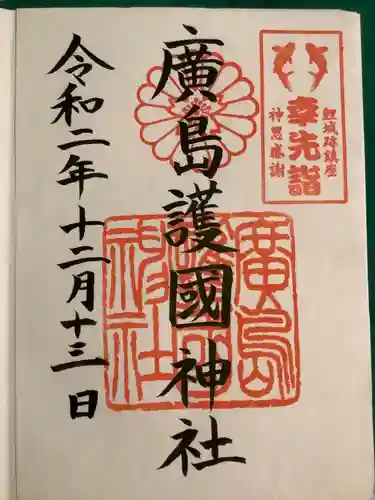 鯉城跡鎮座
幸先詣
神恩感謝
廣島護國神社
廣島護國神社
令和二年十二月十三日